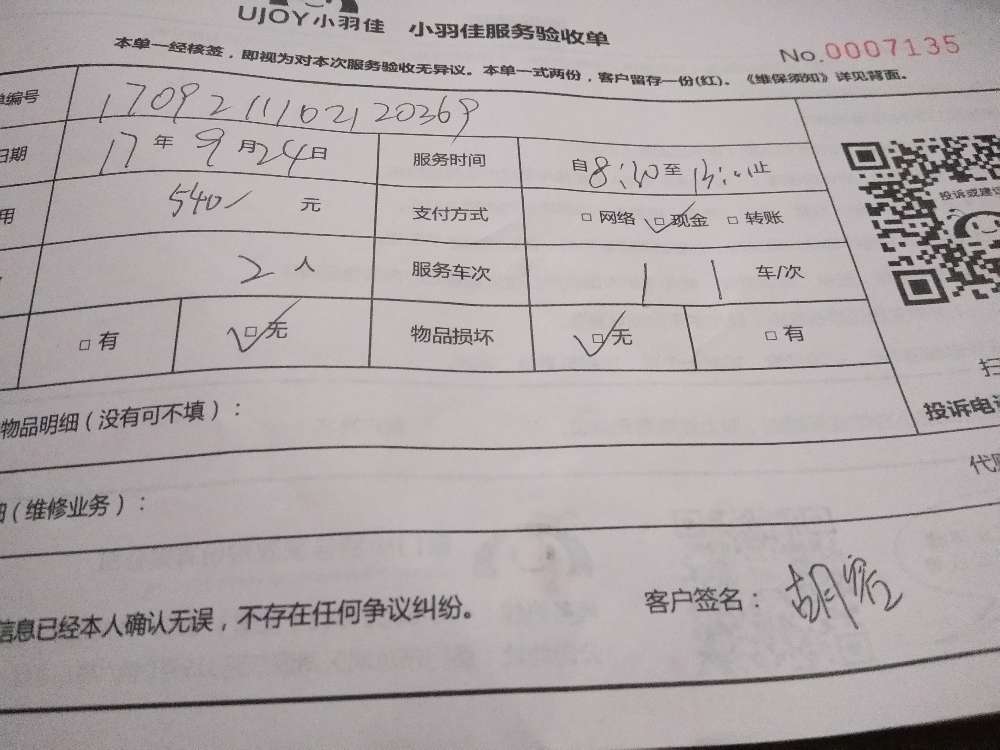 UJOY小羽佳 小羽佳服务验收单
No.0007135
本单一经核签，即视为对本次服务验收无异议。本单一式两份，客户留存一份(红)。《维保须知》详见背面。
单编号 170921110212036​9
日期 17年9月24日 服务时间 自8:30至13:00止
用 540/ 元 支付方式 □ 网络 ☑ 现金 □ 转账
2 人 服务车次 1 1 车/次
□ 有 ☑ 无 物品损坏 ☑ 无 □ 有
投诉或建议
扫
投诉电话
物品明细（没有可不填）：
代
细（维修业务）：
信息已经本人确认无误，不存在任何争议纠纷。
客户签名：胡